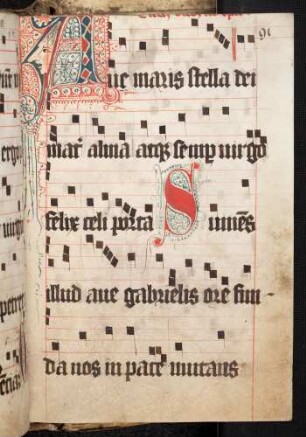 91
Aue maris stella dei
mat̄ alma atqʒ semp̄ uirgo
felix celi porta Sumēs
illud aue gabrielis ore fun
da nos in pace mutans